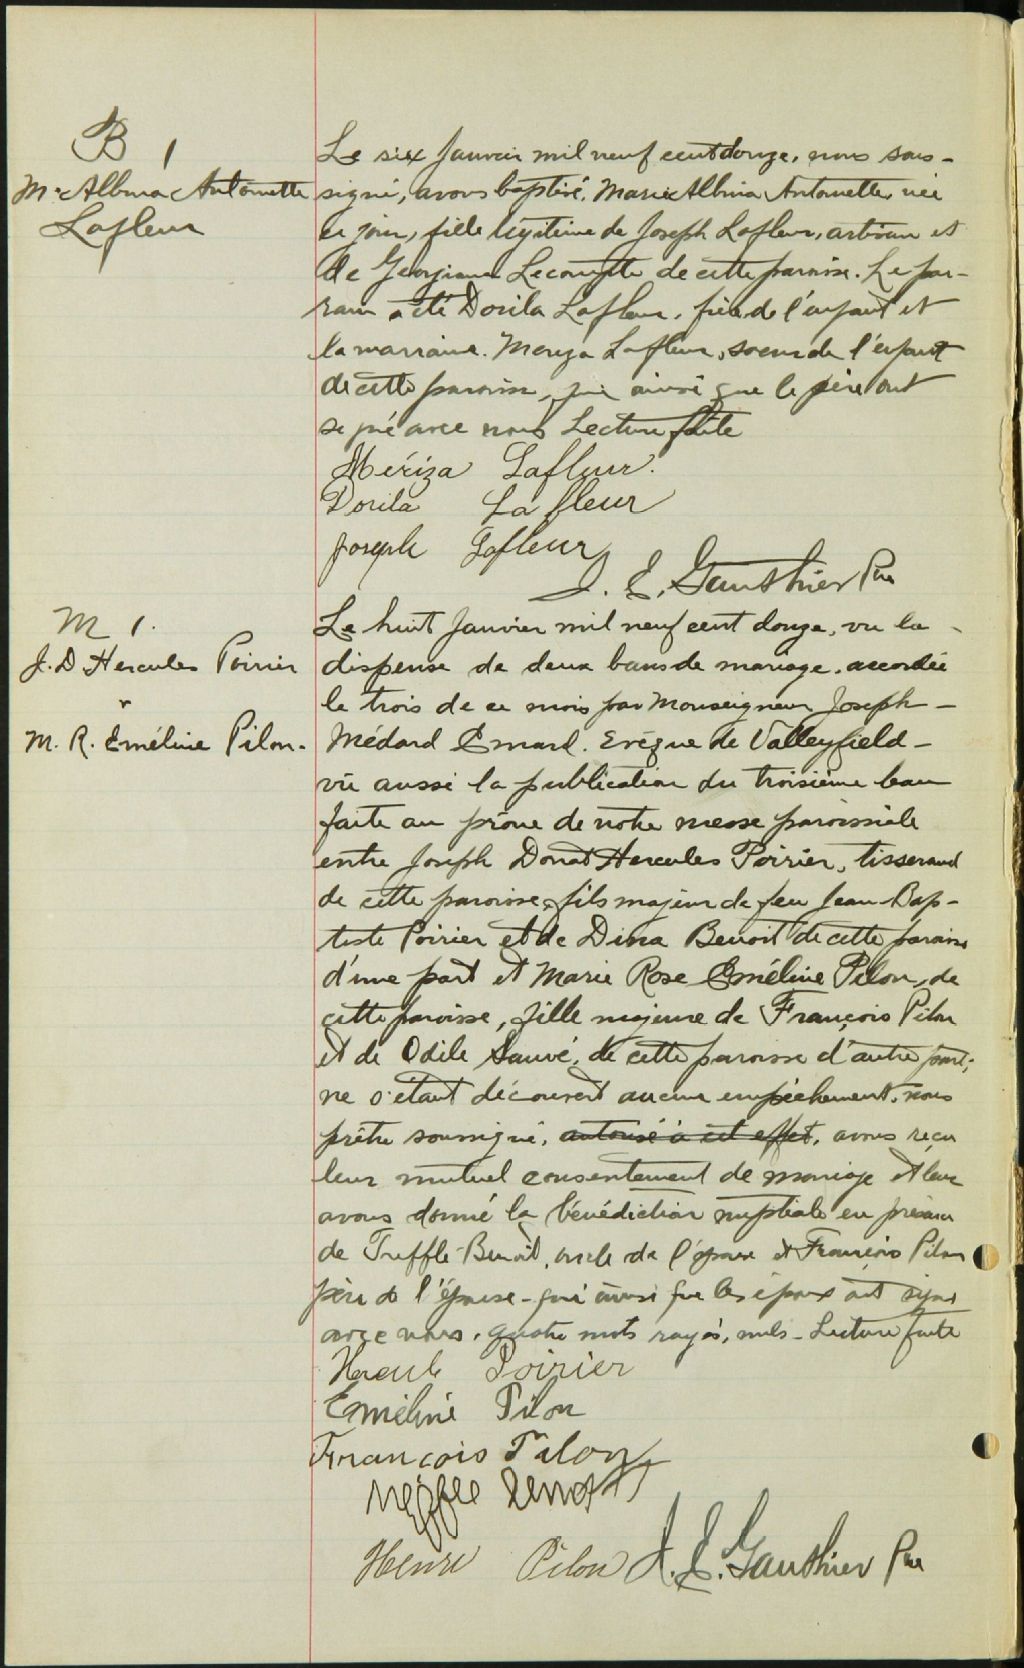 B 1
M. Albina Antoinette
Lafleur
Le six Janvier mil neuf cent douze, nous sous-
signé, avons baptisé, Marie Albina Antoinette, née
ce jour, fille légitime de Joseph Lafleur, artisan et
de Georgiana Lecompte de cette paroisse. Le par-
rain a été Dorila Lafleur, frère de l'enfant et
la marraine, Meriza Lafleur, soeur de l'enfant
de cette paroisse, qui ainsi que le père ont
signé avec nous Lecture faite
Mériza Lafleur.
Dorila Lafleur
Joseph Lafleur
J. E. Gauthier Ptre
M 1.
J. D Hercules Poirier
&
M. R. Eméline Pilon.
Le huit Janvier mil neuf cent douze, vu la
dispense de deux bans de mariage, accordée
le trois de ce mois par Monseigneur Joseph-
Médard Emard, Evêque de Valleyfield-
vu aussi la publication du troisième ban
faite au prône de notre messe paroissiale
entre Joseph Donat Hercules Poirier, tisserand
de cette paroisse, fils majeur de feu Jean-Bap-
tiste Poirier et de Dina Benoit de cette paroisse
d'une part et Marie Rose Eméline Pilon, de
cette paroisse, fille majeure de François Pilon
et de Odile Sauvé, de cette paroisse d'autre part;
ne s'étant découvert aucun empêchement, nous
prêtre soussigné, autorisé à cet effet, avons reçu
leur mutuel consentement de mariage et leur
avons donné la bénédiction nuptiale en présence
de Treffle Benoit, oncle de l'époux et François Pilon
père de l'épouse - qui ainsi que les époux ont signé
avec nous. quatre mots rayés, nuls - Lecture faite
Hercule Poirier
Eméline Pilon
François Pilon
Treffle Benoit
Henri Pilon J. E. Gauthier Ptre